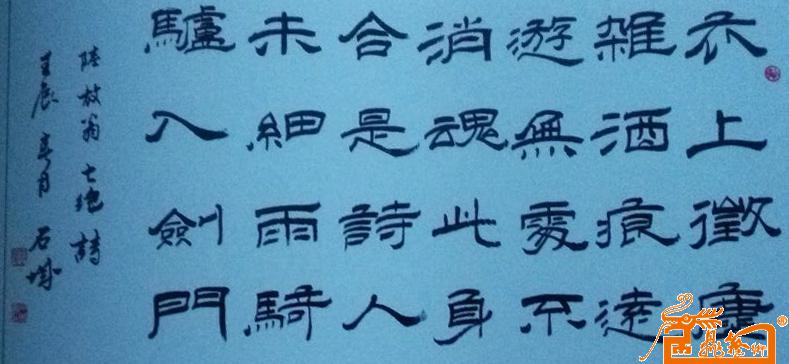 衣上徵塵
雜酒痕遠
遊無處不
消魂此身
合是詩人
未細雨騎
驢入劍門
陸放翁七絕詩
壬辰春月 石城